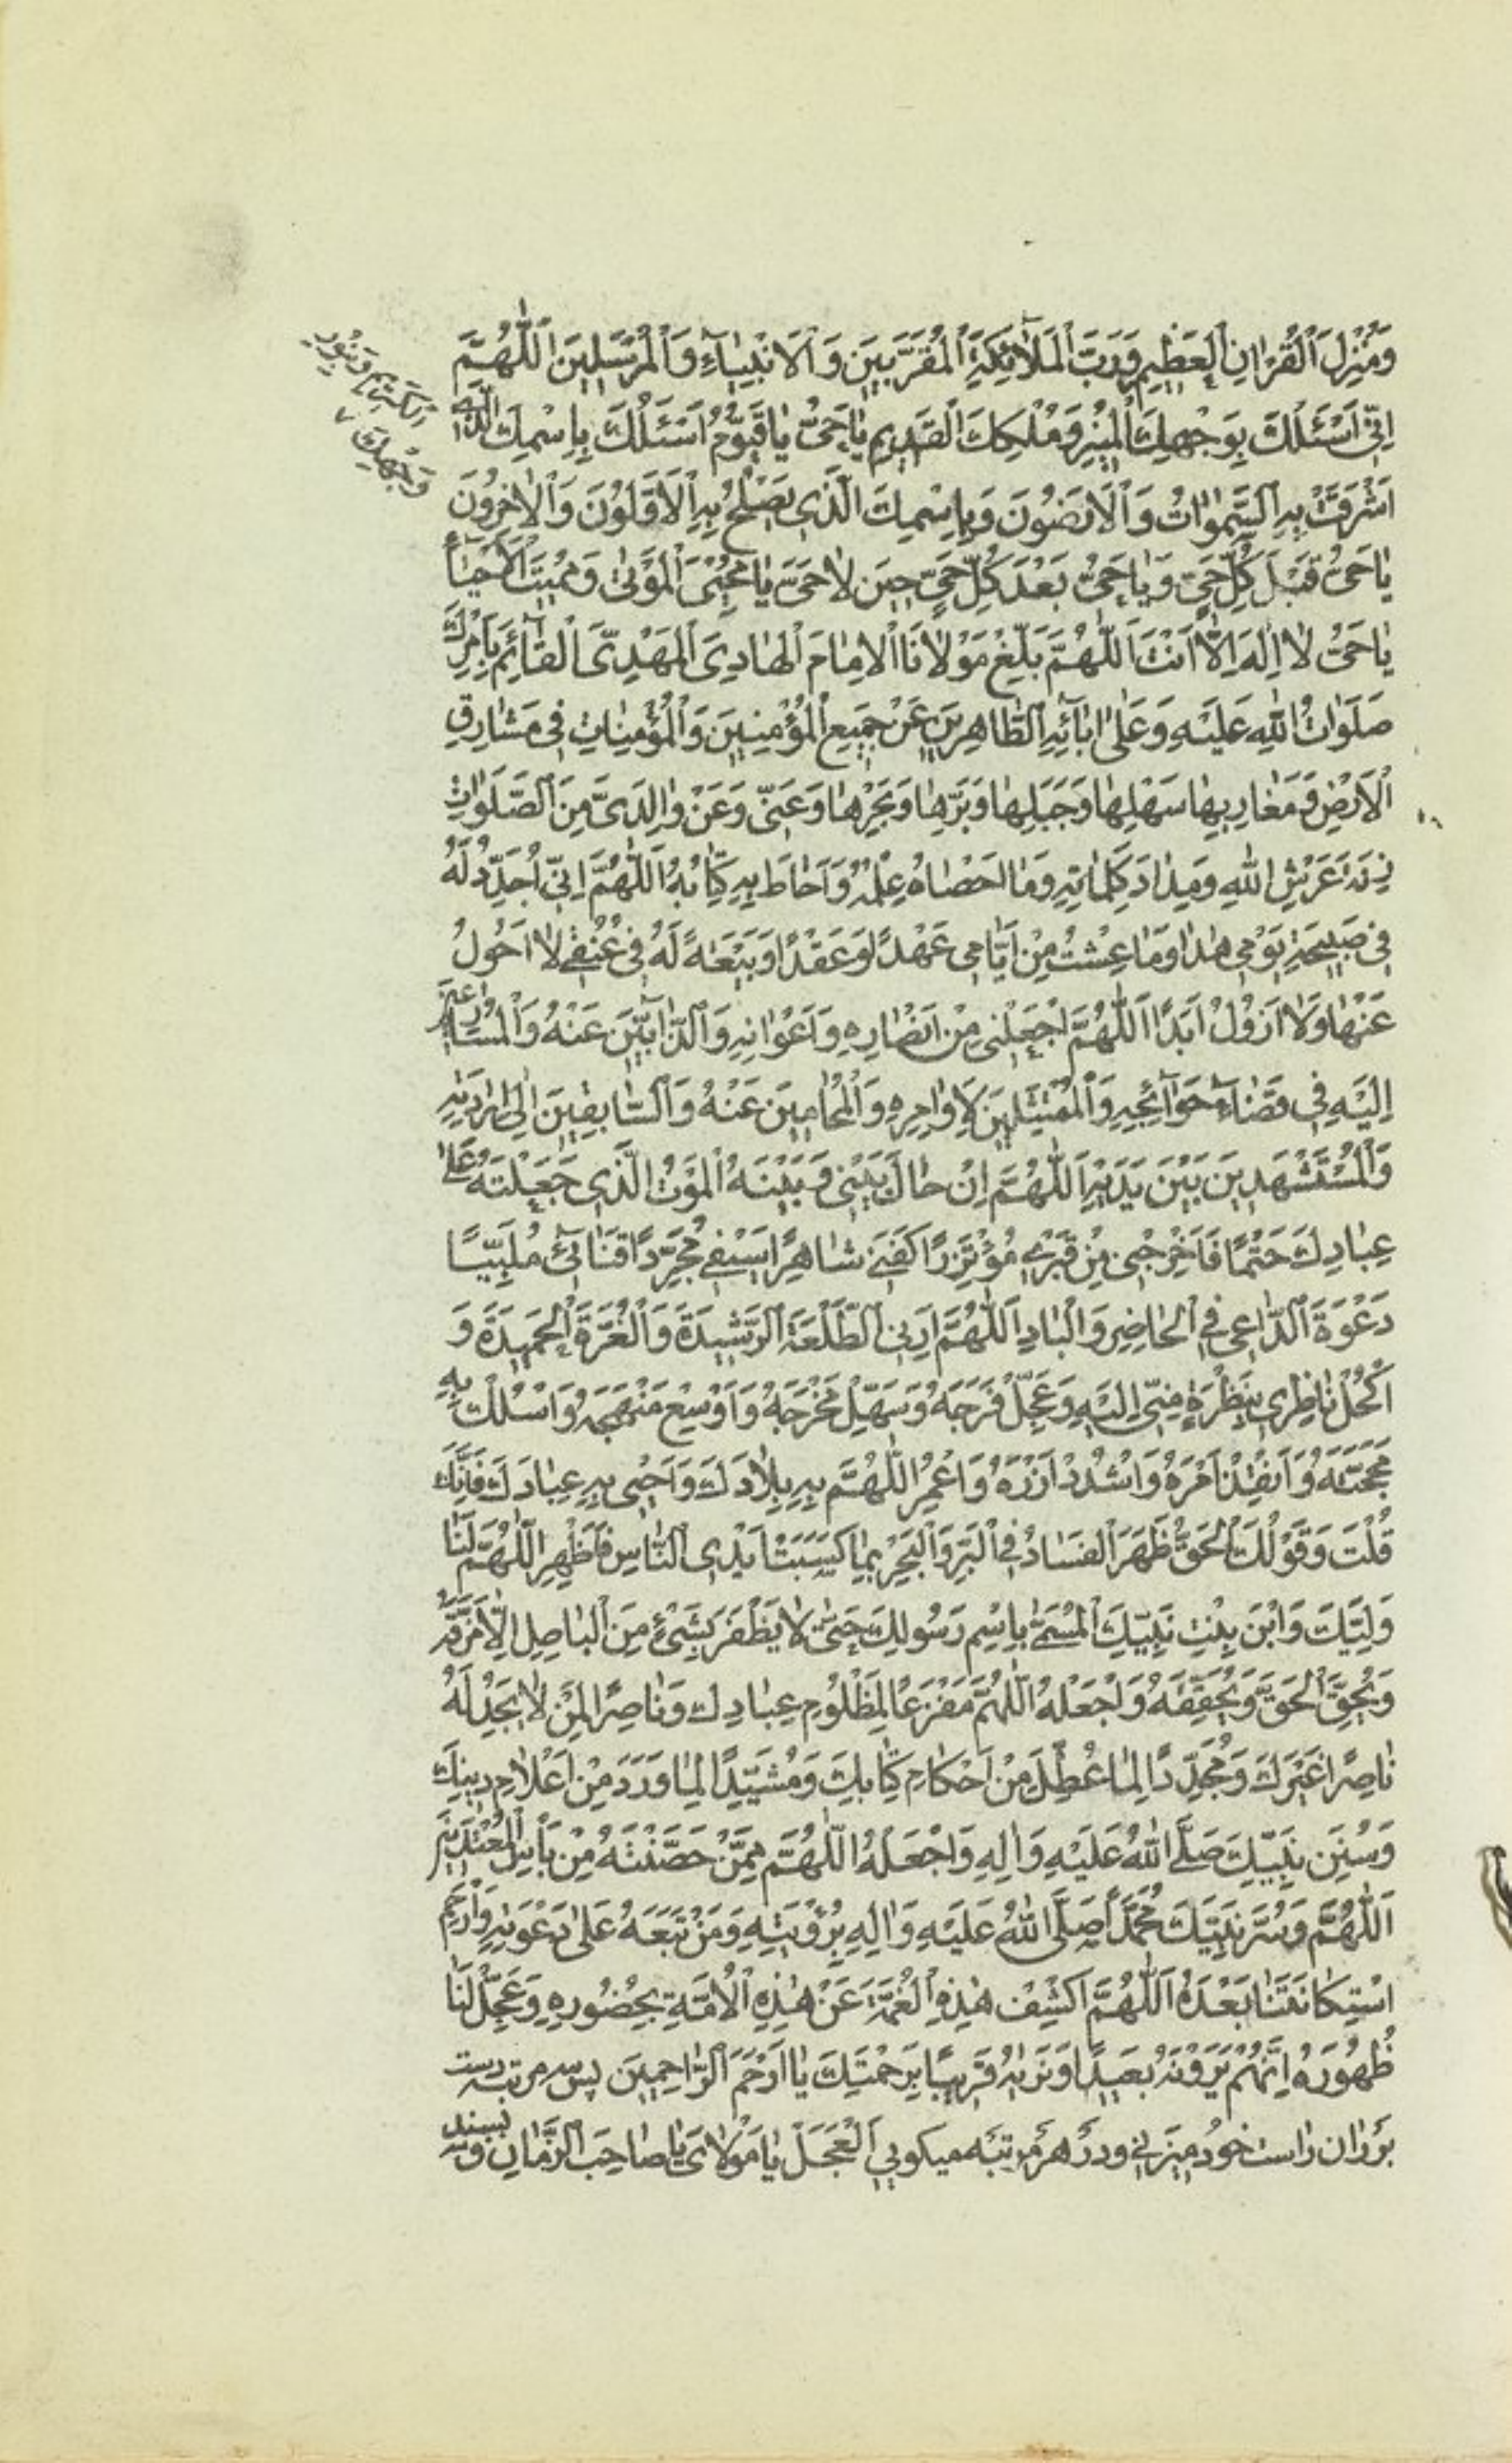 وَمُنْزِلَ ٱلْقُرْاٰنِ ٱلْعَظِيمِ وَرَبَّ ٱلْمَلٰٓائِكَةِ ٱلْمُقَرَّبِينَ وَٱلْاَنْبِيٰٓاءِ وَٱلْمُرْسَلِينَ اَللّٰهُمَّ
اِنِّى اَسْئَلُكَ بِوَجْهِكَ ٱلْمُنِيرِ وَمُلْكِكَ ٱلْقَدِيمِ يٰا حَىُّ يٰا قَيُّومُ اَسْئَلُكَ بِاِسْمِكَ ٱلَّذِى
الكَرِيمِ وَبِنُورِ
وَجْهِكَ
اَشْرَقَتْ بِهِ ٱلسَّمٰوٰاتُ وَٱلْاَرَضُونَ وَبِاِسْمِكَ ٱلَّذِى يَصْلَحُ بِهِ ٱلْاَوَّلُونَ وَٱلْاٰخِرُونَ
يٰا حَىُّ قَبْلَ كُلِّ حَىٍّ وَيٰا حَىُّ بَعْدَ كُلِّ حَىٍّ حِينَ لٰا حَىَّ يٰا مُحْيِىَ ٱلْمَوْتىٰ وَمُمِيتَ ٱلْاَحْيٰٓاءِ
يٰا حَىُّ لٰا اِلٰهَ اِلّٰا اَنْتَ اَللّٰهُمَّ بَلِّغْ مَوْلٰانَا ٱلْاِمٰامَ ٱلْهٰادِىَ ٱلْمَهْدِىَّ ٱلْقٰٓائِمَ بِاَمْرِكَ
صَلَوٰاتُ ٱللّٰهِ عَلَيْهِ وَعَلىٰ اٰبٰٓائِهِ ٱلطّٰاهِرِينَ عَنْ جَمِيعِ ٱلْمُؤْمِنِينَ وَٱلْمُؤْمِنٰاتِ فِى مَشٰارِقِ
ٱلْاَرْضِ وَمَغٰارِبِهٰا سَهْلِهٰا وَجَبَلِهٰا وَبَرِّهٰا وَبَحْرِهٰا وَعَنِّى وَعَنْ وٰالِدَىَّ مِنَ ٱلصَّلَوٰاتِ
زِنَةَ عَرْشِ ٱللّٰهِ وَمِدٰادَ كَلِمٰاتِهِ وَمٰا اَحْصٰاهُ عِلْمُهُ وَاَحٰاطَ بِهِ كِتٰابُهُ اَللّٰهُمَّ اِنِّى اُجَدِّدُ لَهُ
فِى صَبِيحَةِ يَوْمِى هٰذٰا وَمٰا عِشْتُ مِنْ اَيّٰامِى عَهْدًا وَعَقْدًا وَبَيْعَةً لَهُ فِى عُنُقِى لٰا اَحُولُ
عَنْهٰا وَلٰا اَزُولُ اَبَدًا اَللّٰهُمَّ اجْعَلْنِى مِنْ اَنْصٰارِهِ وَاَعْوٰانِهِ وَٱلذّٰابِّينَ عَنْهُ وَٱلْمُسٰارِعِينَ
اِلَيْهِ فِى قَضٰٓاءِ حَوٰٓائِجِهِ وَٱلْمُمْتَثِلِينَ لِاَوٰامِرِهِ وَٱلْمُحٰامِينَ عَنْهُ وَٱلسّٰابِقِينَ اِلىٰ اِرٰادَتِهِ
وَٱلْمُسْتَشْهَدِينَ بَيْنَ يَدَيْهِ اَللّٰهُمَّ اِنْ حٰالَ بَيْنِى وَبَيْنَهُ ٱلْمَوْتُ ٱلَّذِى جَعَلْتَهُ عَلىٰ
عِبٰادِكَ حَتْمًا فَاَخْرِجْنِى مِنْ قَبْرِى مُؤْتَزِرًا كَفَنِى شٰاهِرًا سَيْفِى مُجَرِّدًا قَنٰاتِى مُلَبِّيًا
دَعْوَةَ ٱلدّٰاعِى فِى ٱلْحٰاضِرِ وَٱلْبٰادِ اَللّٰهُمَّ اَرِنِى ٱلطَّلْعَةَ ٱلرَّشِيدَةَ وَٱلْغُرَّةَ ٱلْحَمِيدَةَ وَ
اكْحُلْ نٰاظِرِى بِنَظْرَةٍ مِنِّى اِلَيْهِ وَعَجِّلْ فَرَجَهُ وَسَهِّلْ مَخْرَجَهُ وَاَوْسِعْ مَنْهَجَهُ وَاسْلُكْ بِهِ
مَحَجَّتَهُ وَاَنْفِذْ اَمْرَهُ وَاشْدُدْ اَزْرَهُ وَاعْمُرِ اللّٰهُمَّ بِهِ بِلٰادَكَ وَاَحْىِ بِهِ عِبٰادَكَ فَاِنَّكَ
قُلْتَ وَقَوْلُكَ ٱلْحَقُّ ظَهَرَ ٱلْفَسٰادُ فِى ٱلْبَرِّ وَٱلْبَحْرِ بِمٰا كَسَبَتْ اَيْدِى ٱلنّٰاسِ فَاَظْهِرِ اللّٰهُمَّ لَنٰا
وَلِيَّكَ وَابْنَ بِنْتِ نَبِيِّكَ ٱلْمُسَمّىٰ بِاِسْمِ رَسُولِكَ حَتّىٰ لٰا يَظْفَرَ بِشَىْءٍ مِنَ ٱلْبٰاطِلِ اِلّٰا مَزَّقَهُ
وَيُحِقَّ ٱلْحَقَّ وَيُحَقِّقَهُ وَاجْعَلْهُ اللّٰهُمَّ مَفْزَعًا لِمَظْلُومِ عِبٰادِكَ وَنٰاصِرًا لِمَنْ لٰا يَجِدُ لَهُ
نٰاصِرًا غَيْرَكَ وَمُجَدِّدًا لِمٰا عُطِّلَ مِنْ اَحْكٰامِ كِتٰابِكَ وَمُشَيِّدًا لِمٰا وَرَدَ مِنْ اَعْلٰامِ دِينِكَ
وَسُنَنِ نَبِيِّكَ صَلَّى ٱللّٰهُ عَلَيْهِ وَاٰلِهِ وَاجْعَلْهُ اللّٰهُمَّ مِمَّنْ حَصَّنْتَهُ مِنْ بَأْسِ ٱلْمُعْتَدِينَ
اَللّٰهُمَّ وَسُرَّ نَبِيَّكَ مُحَمَّدًا صَلَّى ٱللّٰهُ عَلَيْهِ وَاٰلِهِ بِرُؤْيَتِهِ وَمَنْ تَبِعَهُ عَلىٰ دَعْوَتِهِ وَارْحَمِ
اسْتِكٰانَتَنٰا بَعْدَهُ اَللّٰهُمَّ اكْشِفْ هٰذِهِ ٱلْغُمَّةَ عَنْ هٰذِهِ ٱلْاُمَّةِ بِحُضُورِهِ وَعَجِّلْ لَنٰا
ظُهُورَهُ اِنَّهُمْ يَرَوْنَهُ بَعِيدًا وَنَرٰيهُ قَرِيبًا بِرَحْمَتِكَ يٰا اَرْحَمَ ٱلرّٰاحِمِينَ پس سه مرتبه دست
بر ران راست خود ميزنى و در هر مرتبه ميكويى اَلْعَجَلَ يٰا مَوْلٰاىَ يٰا صٰاحِبَ ٱلزَّمٰانِ و